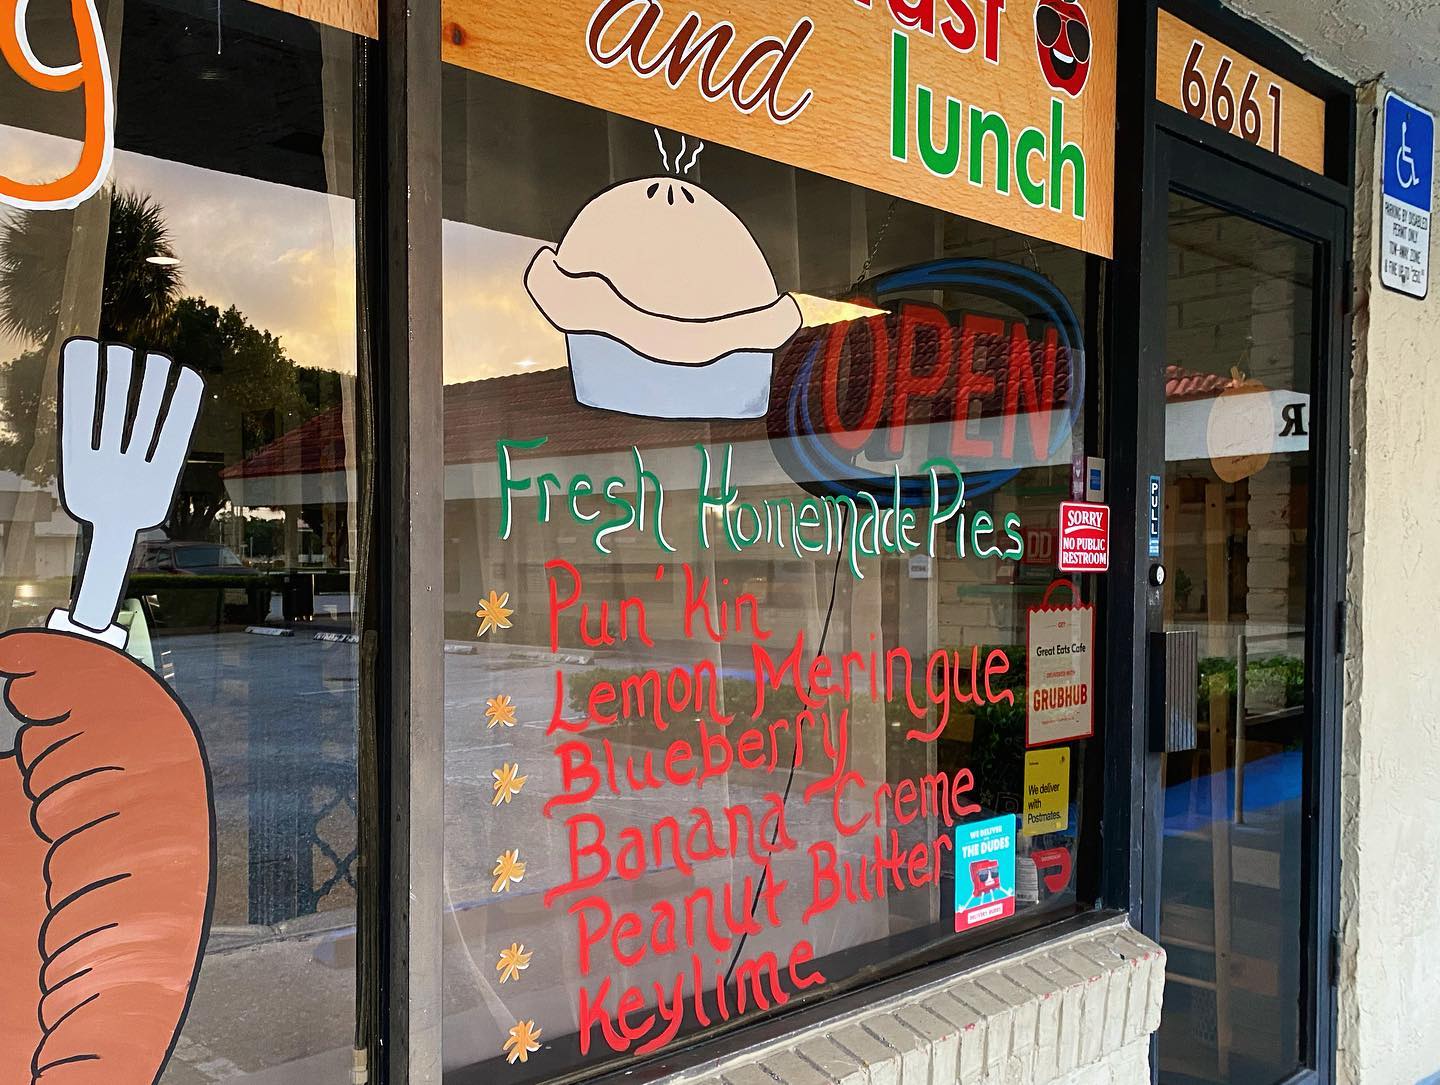 and
lunch
6661
PARKING BY DISABLED
PERMIT ONLY
TOW-AWAY ZONE
OPEN
R
Fresh Homemade Pies
Pun'Kin
Lemon Meringue
Blueberry
Banana Creme
Peanut Butter
Keylime
PULL
SORRY
NO PUBLIC
RESTROOM
GET
Great Eats Cafe
DELIVERED WITH
GRUBHUB
We deliver
with
Postmates.
WE DELIVER
THE DUDES
DELIVERY DUDES